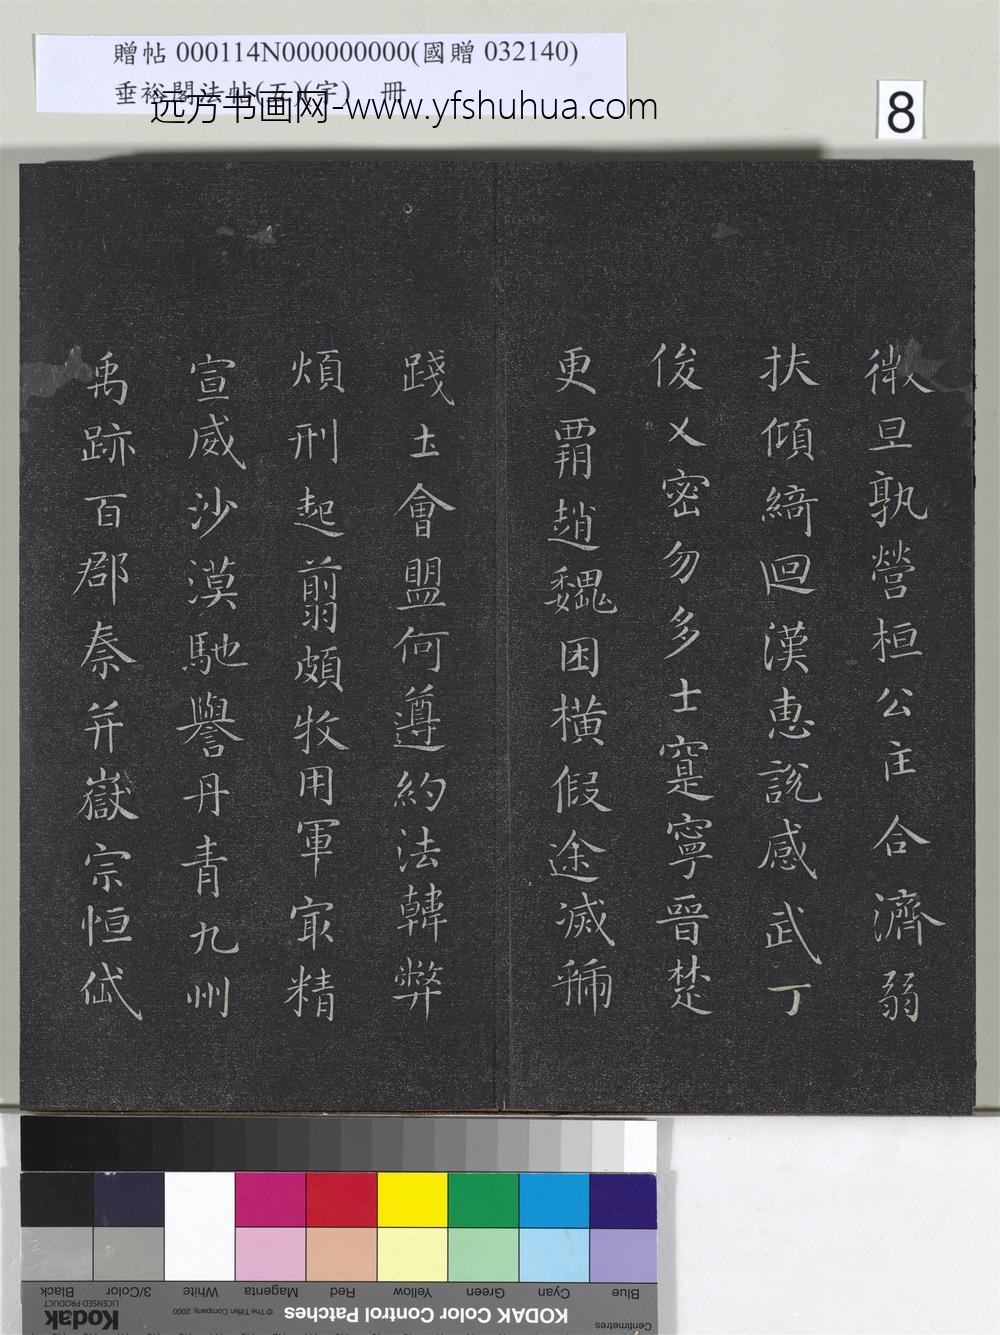 贈帖 000114N000000000(國贈 032140)
垂裕閣法帖(五)(字) 冊
远方书画网-www.yfshuhua.com
8
微旦孰營桓公主合濟弱
扶傾綺迴漢惠說感武丁
俊乂密勿多士寔寧晉楚
更霸趙魏困橫假途滅虢
踐土會盟何遵約法韓弊
煩刑起翦頗牧用軍冣精
宣威沙漠馳譽丹青九州
禹跡百郡秦并嶽宗恒岱
Blue
Cyan
Green
Yellow
Red
Magenta
White
3/Color
Black
Centimetres
KODAK Color Control Patches
© The Tiffen Company, 2000
Kodak
LICENSED PRODUCT